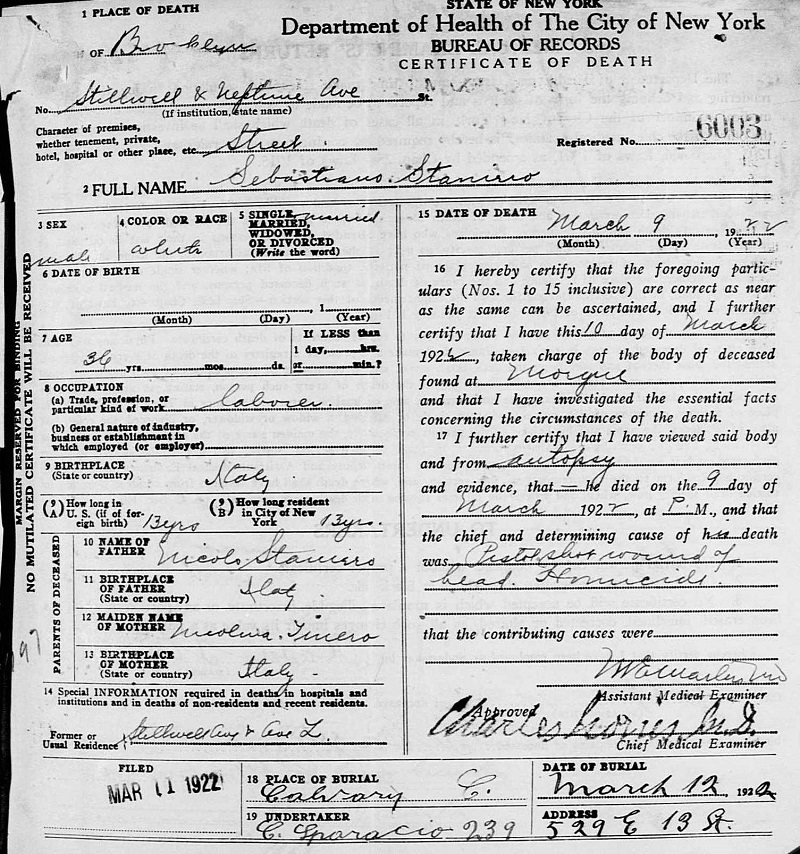 STATE OF NEW YORK
Department of Health of The City of New York
BUREAU OF RECORDS
CERTIFICATE OF DEATH
1 PLACE OF DEATH
OF Brooklyn
No. Stillwell & Neptune Ave St.
(If institution, state name)
Character of premises,
whether tenement, private,
hotel, hospital or other place, etc. Street.
Registered No. 6003
2 FULL NAME Sebastiano
MARGIN RESERVED FOR BINDING
NO MUTILATED CERTIFICATE WILL BE RECEIVED
3 SEX
male
4 COLOR OR RACE
white
5 SINGLE, married
MARRIED,
WIDOWED,
OR DIVORCED
(Write the word)
6 DATE OF BIRTH
, 1
(Month) (Day) (Year)
7 AGE
36 yrs. mos. ds.
If LESS than
1 day, hrs.
or min.?
8 OCCUPATION
(a) Trade, profession, or
particular kind of work laborer.
(b) General nature of industry,
business or establishment in
which employed (or employer)
9 BIRTHPLACE
(State or country) Italy
(9 A) How long in
U. S. (if of for-
eign birth) 13yrs
(9 B) How long resident
in City of New
York 13yrs.
PARENTS OF DECEASED
97
10 NAME OF
FATHER Nicolo
11 BIRTHPLACE
OF FATHER
(State or country) Italy
12 MAIDEN NAME
OF MOTHER
13 BIRTHPLACE
OF MOTHER
(State or country) Italy
14 Special INFORMATION required in deaths in hospitals and
institutions and in deaths of non-residents and recent residents.
Former or
Usual Residence Stillwell Ave & Ave
15 DATE OF DEATH March 9 1922
(Month) (Day) (Year)
16 I hereby certify that the foregoing partic-
ulars (Nos. 1 to 15 inclusive) are correct as near
as the same can be ascertained, and I further
certify that I have this 10 day of March
1922, taken charge of the body of deceased
found at Morgue
and that I have investigated the essential facts
concerning the circumstances of the death.
17 I further certify that I have viewed said body
and from autopsy
and evidence, that he died on the 9 day of
March 1922, at P. M., and that
the chief and determining cause of his death
was Pistol shot wound of
head. Homicide.
that the contributing causes were
Assistant Medical Examiner
Approved
Charles Norris M.D.
Chief Medical Examiner
FILED
MAR 11 1922
18 PLACE OF BURIAL
Calvary C.
DATE OF BURIAL
March 12, 1922
19 UNDERTAKER
C. Sparacio 239
ADDRESS
529 E 13 St.